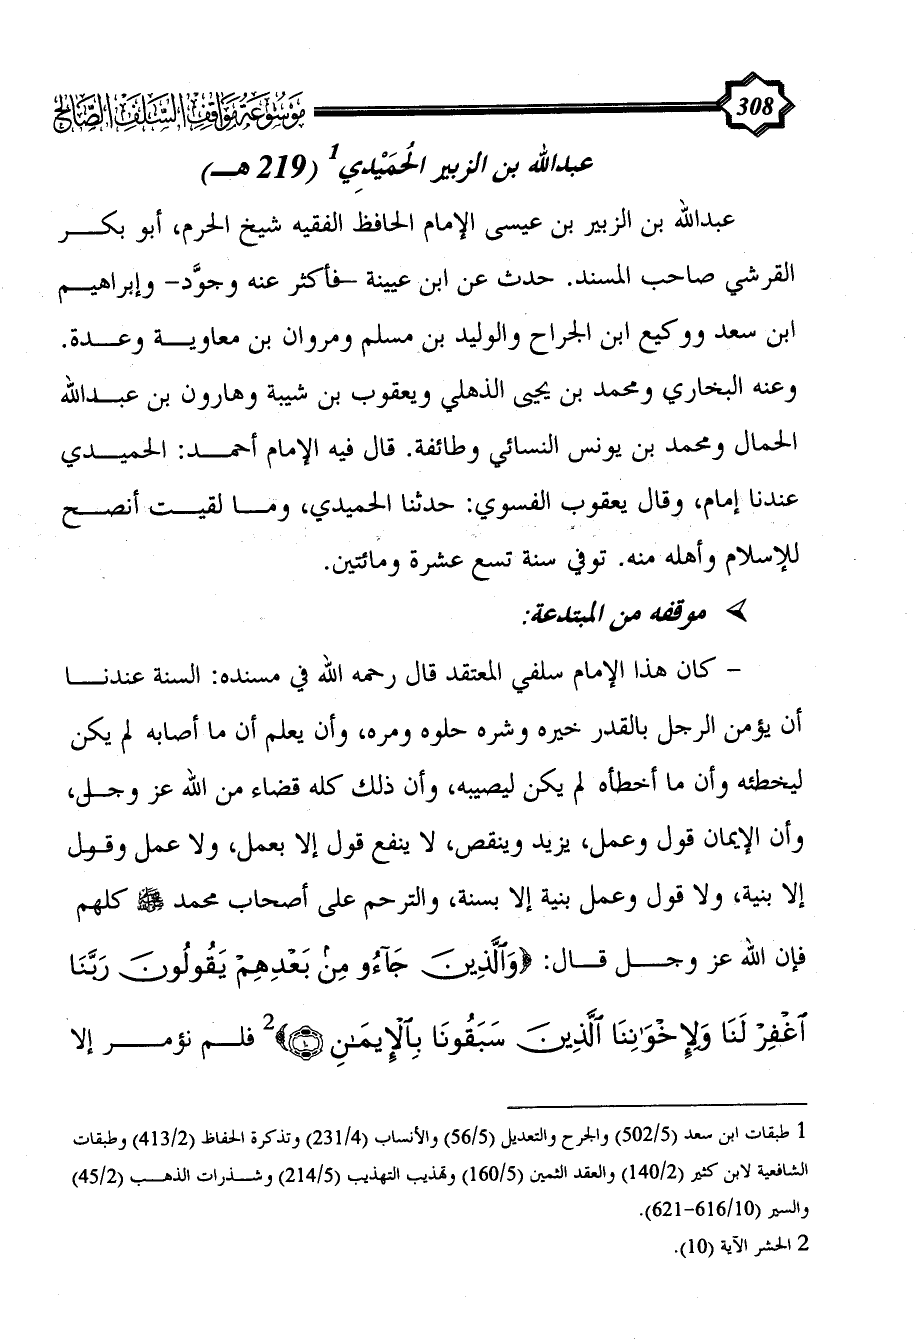 308
موسوعة مواقف السلف الصالح
عبدالله بن الزبير الحُمَيْدِي1 (219 هـــ)
عبدالله بن الزبير بن عيسى الإمام الحافظ الفقيه شيخ الحرم، أبو بكــر
القرشي صاحب المسند. حدث عن ابن عيينة –فأكثر عنه وجوَّد– وإبراهيــم
ابن سعد ووكيع ابن الجراح والوليد بن مسلم ومروان بن معاويــة وعــدة.
وعنه البخاري ومحمد بن يحيى الذهلي ويعقوب بن شيبة وهارون بن عبــدالله
الحمال ومحمد بن يونس النسائي وطائفة. قال فيه الإمام أحمــد: الحميــدي
عندنا إمام، وقال يعقوب الفسوي: حدثنا الحميدي، ومــا لقيــت أنصــح
للإسلام وأهله منه. توفي سنة تسع عشرة ومائتين.
➢ موقفه من المبتدعة:
– كان هذا الإمام سلفي المعتقد قال رحمه الله في مسنده: السنة عندنــا
أن يؤمن الرجل بالقدر خيره وشره حلوه ومره، وأن يعلم أن ما أصابه لم يكن
ليخطئه وأن ما أخطأه لم يكن ليصيبه، وأن ذلك كله قضاء من الله عز وجــل،
وأن الإيمان قول وعمل، يزيد وينقص، لا ينفع قول إلا بعمل، ولا عمل وقــول
إلا بنية، ولا قول وعمل بنية إلا بسنة، والترحم على أصحاب محمد ﷺ كلهم
فإن الله عز وجــــل قــال: ﴿وَٱلَّذِينَ جَآءُو مِنۢ بَعْدِهِمْ يَقُولُونَ رَبَّنَا
ٱغْفِرْ لَنَا وَلِإِخْوَٰنِنَا ٱلَّذِينَ سَبَقُونَا بِٱلْإِيمَٰنِ ۝١٠﴾2 فلــم نؤمــر إلا
1 طبقات ابن سعد (502/5) والجرح والتعديل (56/5) والأنساب (231/4) وتذكرة الحفاظ (413/2) وطبقات
الشافعية لابن كثير (140/2) والعقد الثمين (160/5) وتهذيب التهذيب (214/5) وشــذرات الذهــب (45/2)
والسير (616/10–621).
2 الحشر الآية (10).